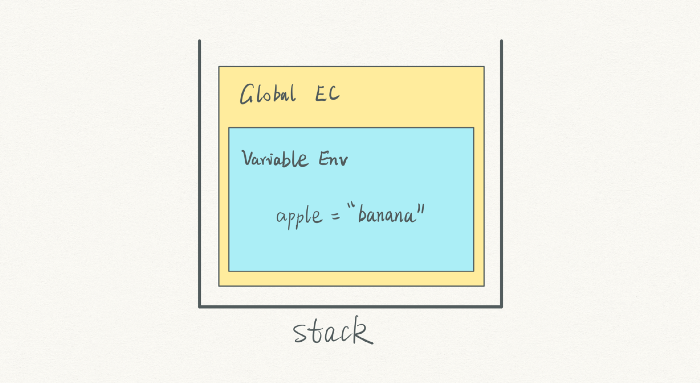 Global EC
Variable Env
apple = "banana"
stack